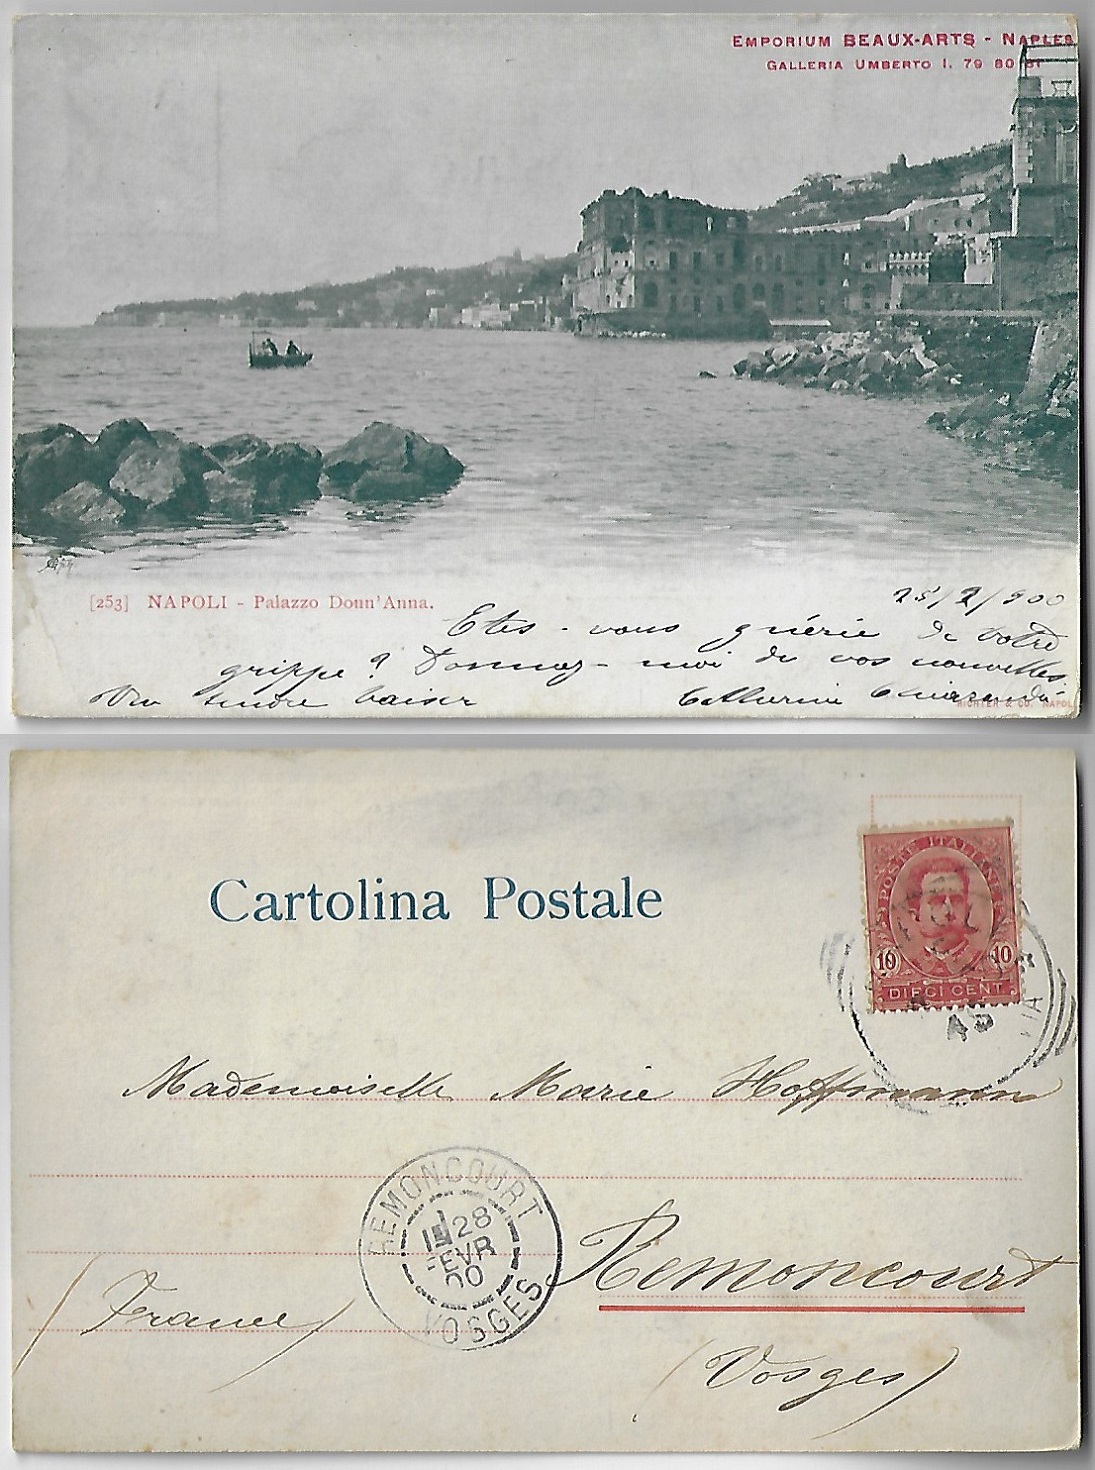 EMPORIUM BEAUX-ARTS - NAPLES
GALLERIA UMBERTO I. 79 80 81
[253] NAPOLI - Palazzo Donn'Anna.
25/2/900
Etes-vous guérie de votre
grippe ? Donnez-moi de vos nouvelles.
Un tendre baiser Catherine
RICHTER & CO. NAPOLI
Cartolina Postale
POSTE ITALIANE
10 10
DIECI CENT.
45
Mademoiselle Marie Hoffmann
REMONCOURT
28
FEVR
00
VOSGES
Remoncourt
(France)
(Vosges)